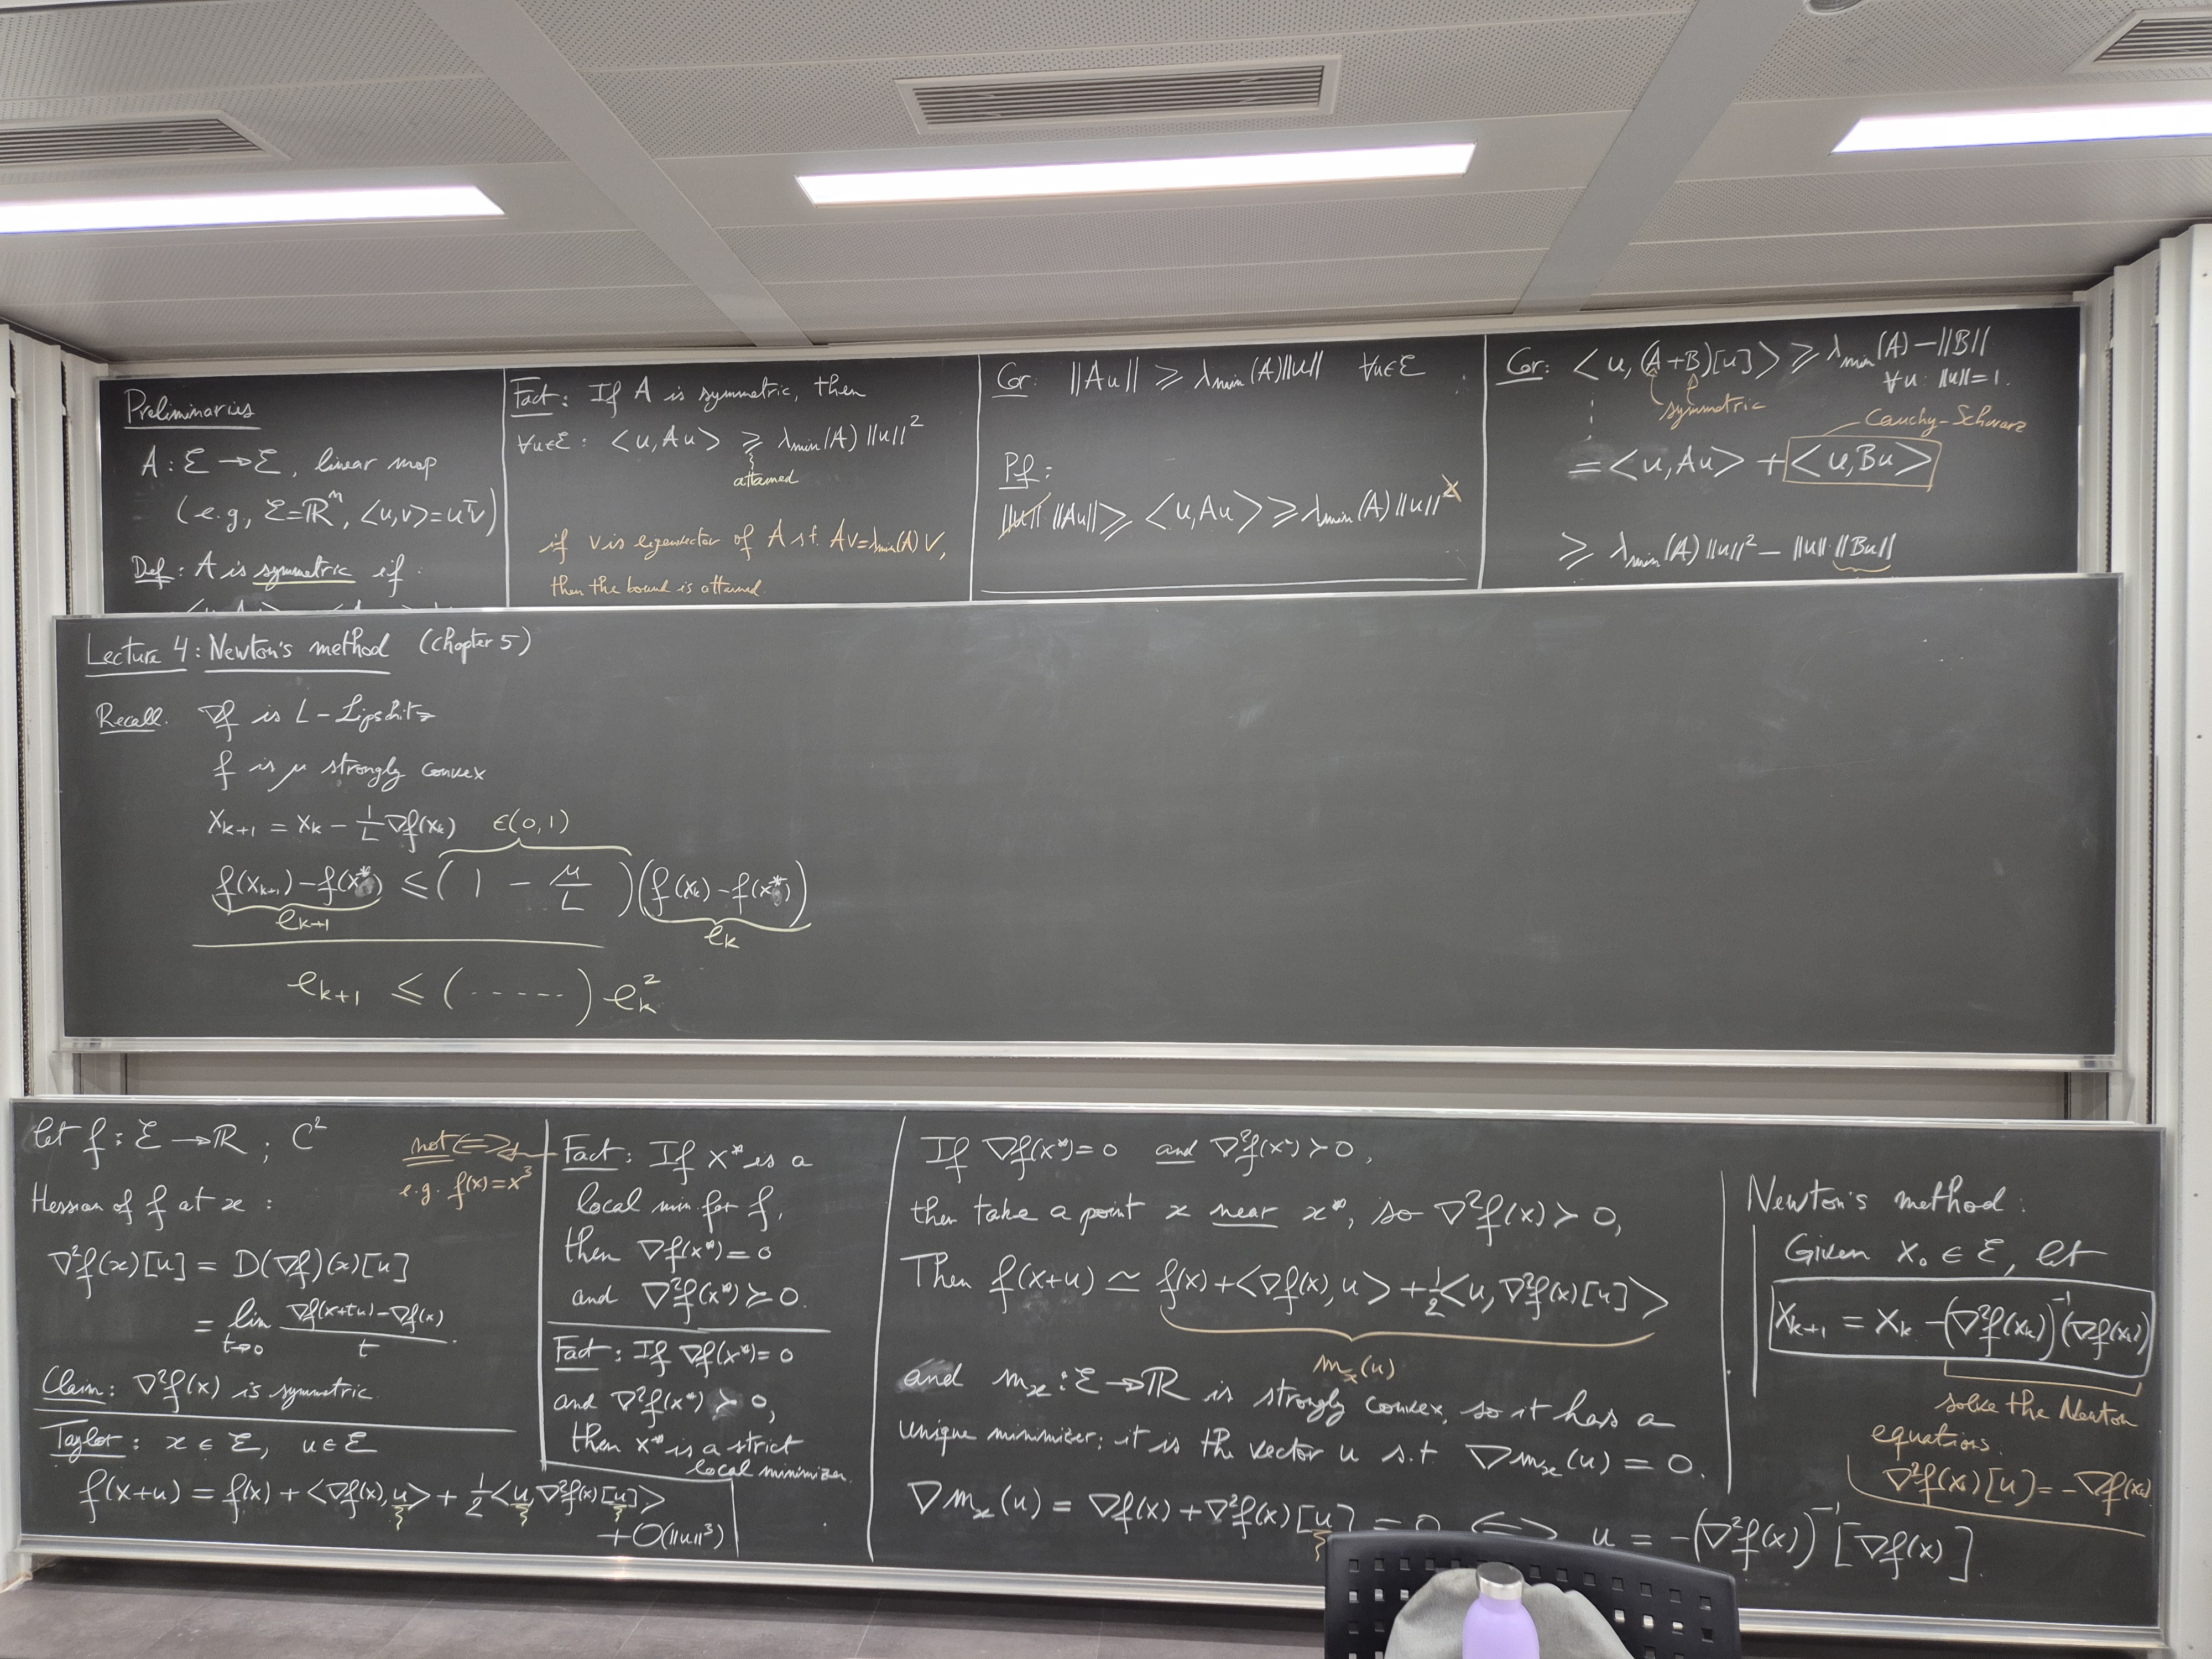 Preliminaries
A : ℰ → ℰ, linear map
(e.g, ℰ=ℝⁿ, <u,v>=uᵀv)
Def: A is symmetric if
Fact: If A is symmetric, then
∀u∈ℰ: <u, Au> ≥ λmin(A) ||u||²
attained
if v is eigenvector of A s.t. Av=λmin(A) v,
then the bound is attained.
Cor: ||Au|| ≥ λmin(A)||u|| ∀u∈ℰ
Pf:
||u|| ||Au|| ≥ <u,Au> ≥ λmin(A) ||u||²
Cor: <u, (A+B)[u]> ≥ λmin(A) - ||B||
∀u: ||u||=1.
symmetric
Cauchy-Schwarz
= <u,Au> + <u,Bu>
≥ λmin(A) ||u||² - ||u|| ||Bu||
Lecture 4: Newton's method (chapter 5)
Recall. ∇f is L-Lipschitz
f is μ strongly convex
x_{k+1} = x_k - 1/L ∇f(x_k)
∈(0,1)
f(x_{k+1}) - f(x*) ≤ (1 - μ/L)(f(x_k) - f(x*))
e_{k+1}
e_k
e_{k+1} ≤ (.....) e_k²
let f: ℰ → ℝ ; C²
Hessian of f at x :
∇²f(x)[u] = D(∇f)(x)[u]
= lim t→0 (∇f(x+tu) - ∇f(x))/t.
Claim: ∇²f(x) is symmetric
Taylor: x ∈ ℰ, u ∈ ℰ
f(x+u) = f(x) + <∇f(x), u> + 1/2 <u, ∇²f(x)[u]>
+ O(||u||³)
not ⟺
e.g. f(x)=x³
Fact: If x* is a
local min for f,
then ∇f(x*) = 0
and ∇²f(x*) ⪰ 0.
Fact: If ∇f(x*) = 0
and ∇²f(x*) ≻ 0,
then x* is a strict
local minimizer.
If ∇f(x*) = 0 and ∇²f(x*) ≻ 0,
then take a point x near x*, so ∇²f(x) ≻ 0,
Then f(x+u) ≃ f(x) + <∇f(x), u> + 1/2 <u, ∇²f(x)[u]>
m_x(u)
and m_x : ℰ → ℝ is strongly convex, so it has a
unique minimizer: it is the vector u s.t ∇m_x(u) = 0.
∇m_x(u) = ∇f(x) + ∇²f(x)[u] = 0 ⟺ u = -(∇²f(x))⁻¹[∇f(x)].
Newton's method:
Given x₀ ∈ ℰ, let
x_{k+1} = x_k - (∇²f(x_k))⁻¹(∇f(x_k))
solve the Newton
equations.
∇²f(x_k)[u] = -∇f(x_k)